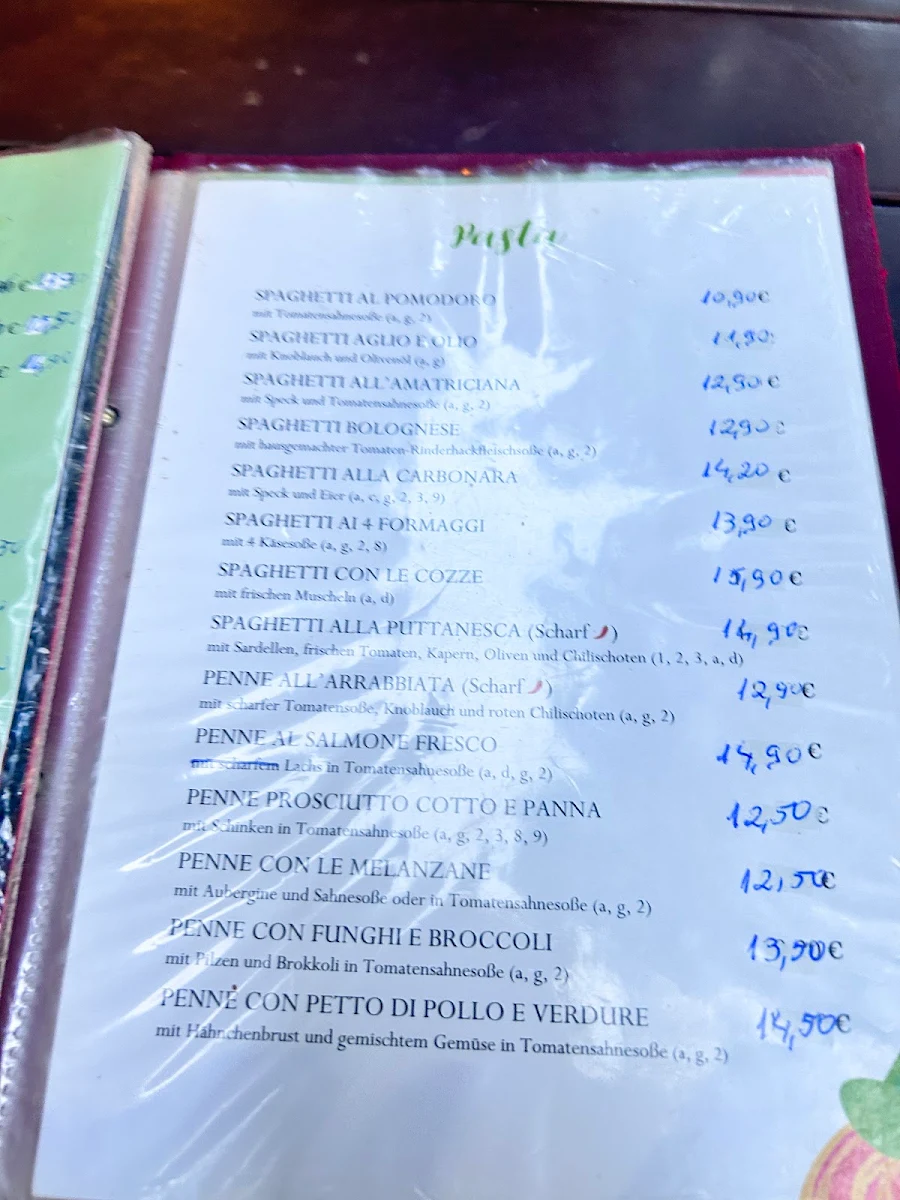 Pasta
SPAGHETTI AL POMODORO 10,90€
mit Tomatensahnesoße (a, g, 2)
SPAGHETTI AGLIO E OLIO 11,90
mit Knoblauch und Olivenöl (a, g)
SPAGHETTI ALL'AMATRICIANA 12,90 €
mit Speck und Tomatensahnesoße (a, g, 2)
SPAGHETTI BOLOGNESE 12,90 €
mit hausgemachter Tomaten-Rinderhackfleischsoße (a, g, 2)
SPAGHETTI ALLA CARBONARA 14,20 €
mit Speck und Eier (a, c, g, 2, 3, 9)
SPAGHETTI AI 4 FORMAGGI 13,90 €
mit 4 Käsesoße (a, g, 2, 8)
SPAGHETTI CON LE COZZE 15,90€
mit frischen Muscheln (a, d)
SPAGHETTI ALLA PUTTANESCA (Scharf) 14,90€
mit Sardellen, frischen Tomaten, Kapern, Oliven und Chilischoten (1, 2, 3, a, d)
PENNE ALL'ARRABBIATA (Scharf) 12,90€
mit scharfer Tomatensoße, Knoblauch und roten Chilischoten (a, g, 2)
PENNE AL SALMONE FRESCO 14,90€
mit scharfem Lachs in Tomatensahnesoße (a, d, g, 2)
PENNE PROSCIUTTO COTTO E PANNA 12,50€
mit Schinken in Tomatensahnesoße (a, g, 2, 3, 8, 9)
PENNE CON LE MELANZANE 12,50€
mit Aubergine und Sahnesoße oder in Tomatensahnesoße (a, g, 2)
PENNE CON FUNGHI E BROCCOLI 13,90€
mit Pilzen und Brokkoli in Tomatensahnesoße (a, g, 2)
PENNE CON PETTO DI POLLO E VERDURE 14,50€
mit Hähnchenbrust und gemischtem Gemüse in Tomatensahnesoße (a, g, 2)